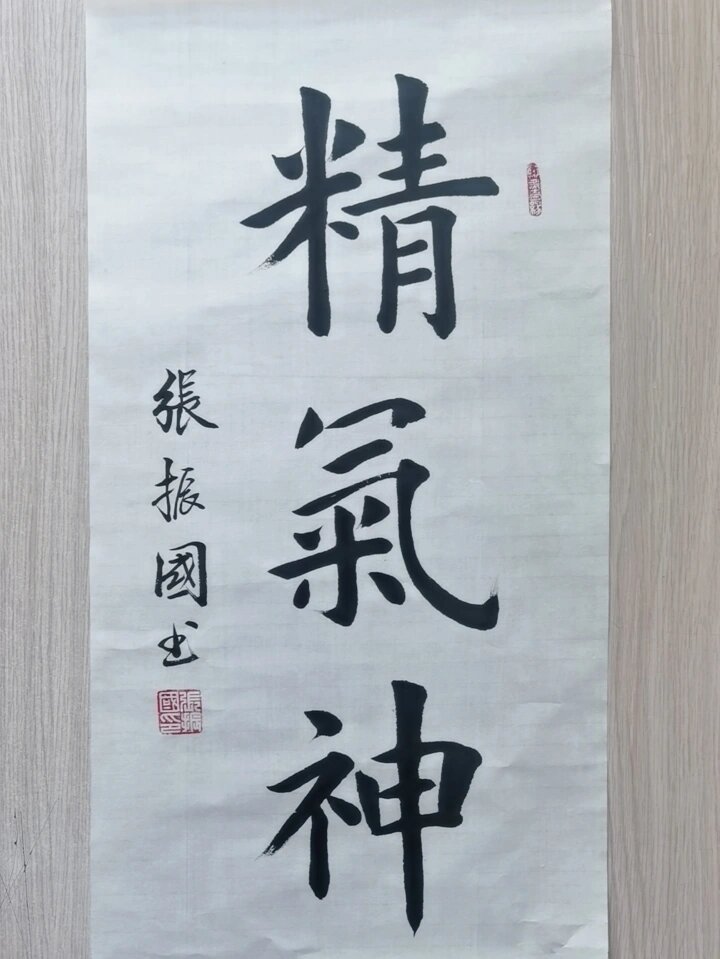 精氣神
張振國书
張振國印